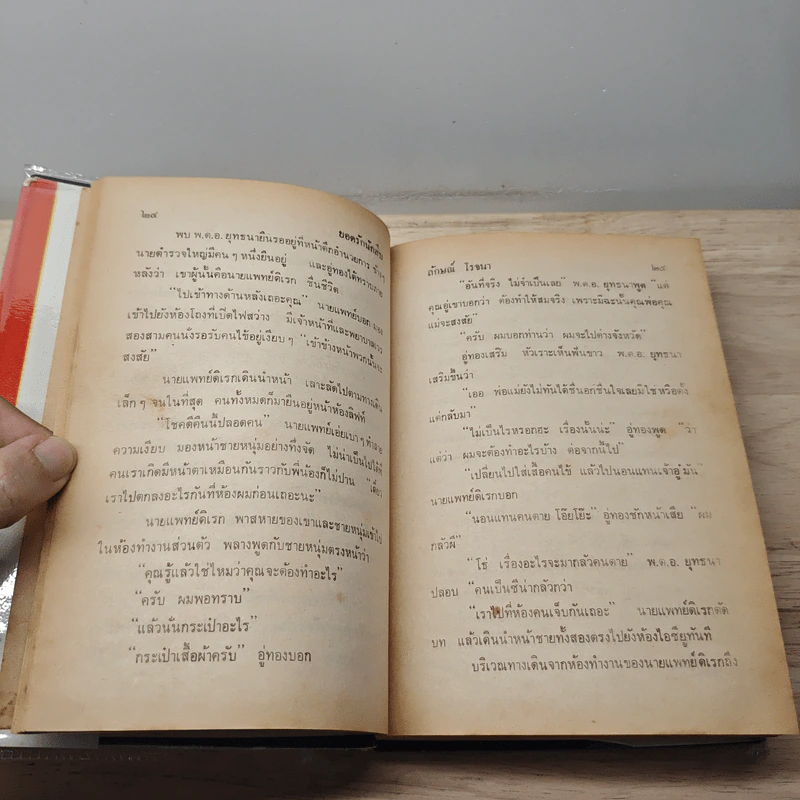 ๒๔
ยอดรักนักสืบ
พบ พ.ต.อ. ยุทธนายืนรออยู่ที่หน้าตึกอำนวยการ ข้างๆ
นายตำรวจใหญ่มีคนๆ หนึ่งยืนอยู่ และอู่ทองได้ทราบภาย
หลังว่า เขาผู้นั้นคือนายแพทย์ดิเรก ชื่นชีวิต
“ไปเข้าทางด้านหลังเถอะคุณ” นายแพทย์บอก
เข้าไปยังห้องโถงที่เปิดไฟสว่าง มีเจ้าหน้าที่และพยาบาลราว
สองสามคนนั่งรอรับคนไข้อยู่เงียบๆ “เข้าข้างหน้าพวกนั้นจะ
สงสัย”
นายแพทย์ดิเรกเดินนำหน้า เลาะลัดไปตามทางเดิน
เล็กๆ จนในที่สุด คนทั้งหมดก็มายืนอยู่หน้าห้องลิฟท์
“โชคดีคืนนี้ปลอดคน” นายแพทย์เอ่ยเบาๆ ทำลาย
ความเงียบ มองหน้าชายหนุ่มอย่างทึ่งจัด ไม่น่าเป็นไปได้ที่
คนเราเกิดมีหน้าตาเหมือนกันราวกับพี่น้องก็ไม่ปาน “เดี๋ยว
เราไปตกลงอะไรกันที่ห้องผมก่อนเถอะนะ”
นายแพทย์ดิเรก พาสหายของเขาและชายหนุ่มเข้าไป
ในห้องทำงานส่วนตัว พลางพูดกับชายหนุ่มตรงหน้าว่า
“คุณรู้แล้วใช่ไหมว่าคุณจะต้องทำอะไร”
“ครับ ผมพอทราบ”
“แล้วนั่นกระเป๋าอะไร”
“กระเป๋าเสื้อผ้าครับ” อู่ทองบอก
ลักษณ์ โรจนา
๒๕
“อันที่จริง ไม่จำเป็นเลย” พ.ต.อ. ยุทธนาพูด “แต่
คุณอู่เขาบอกว่า ต้องทำให้สมจริง เพราะมิฉะนั้นคุณพ่อคุณ
แม่จะสงสัย”
“ครับ ผมบอกท่านว่า ผมจะไปต่างจังหวัด”
อู่ทองเสริม หัวเราะเห็นฟันขาว พ.ต.อ. ยุทธนา
เสริมขึ้นว่า
“เออ พ่อแม่ยังไม่ทันได้ชื่นอกชื่นใจเลยมิใช่หรือตั้ง
แต่กลับมา”
“ไม่เป็นไรหรอกฮะ เรื่องนั้นน่ะ” อู่ทองพูด “ว่า
แต่ว่า ผมจะต้องทำอะไรบ้าง ต่อจากนี้ไป”
“เปลี่ยนไปใส่เสื้อคนไข้ แล้วไปนอนแทนเจ้าอู๋มัน”
นายแพทย์ดิเรกบอก
“นอนแทนคนตาย โอ๊ยโย๊ะ” อู่ทองชักหน้าเสีย “ผม
กลัวผี”
“โธ่ เรื่องอะไรจะมากลัวคนตาย” พ.ต.อ. ยุทธนา
ปลอบ “คนเป็นซิน่ากลัวกว่า”
“เราไปที่ห้องคนเจ็บกันเถอะ” นายแพทย์ดิเรกตัด
บท แล้วเดินนำหน้าชายทั้งสองตรงไปยังห้องไอซียูทันที
บริเวณทางเดินจากห้องทำงานของนายแพทย์ดิเรกถึง